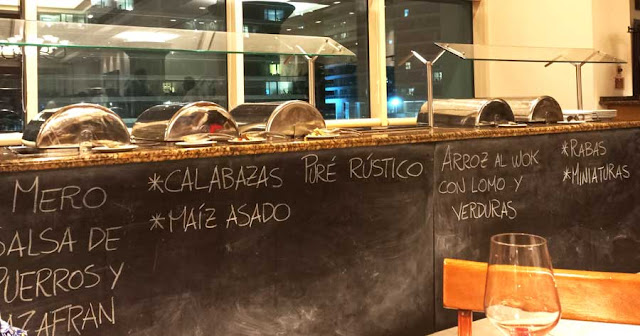 MERO
SALSA DE
PUERROS Y
AZAFRAN
*CALABAZAS
*MAÍZ ASADO
PURÉ RÚSTICO
ARROZ AL WOK
CON LOMO Y
VERDURAS
*RABAS
*MINIATURAS